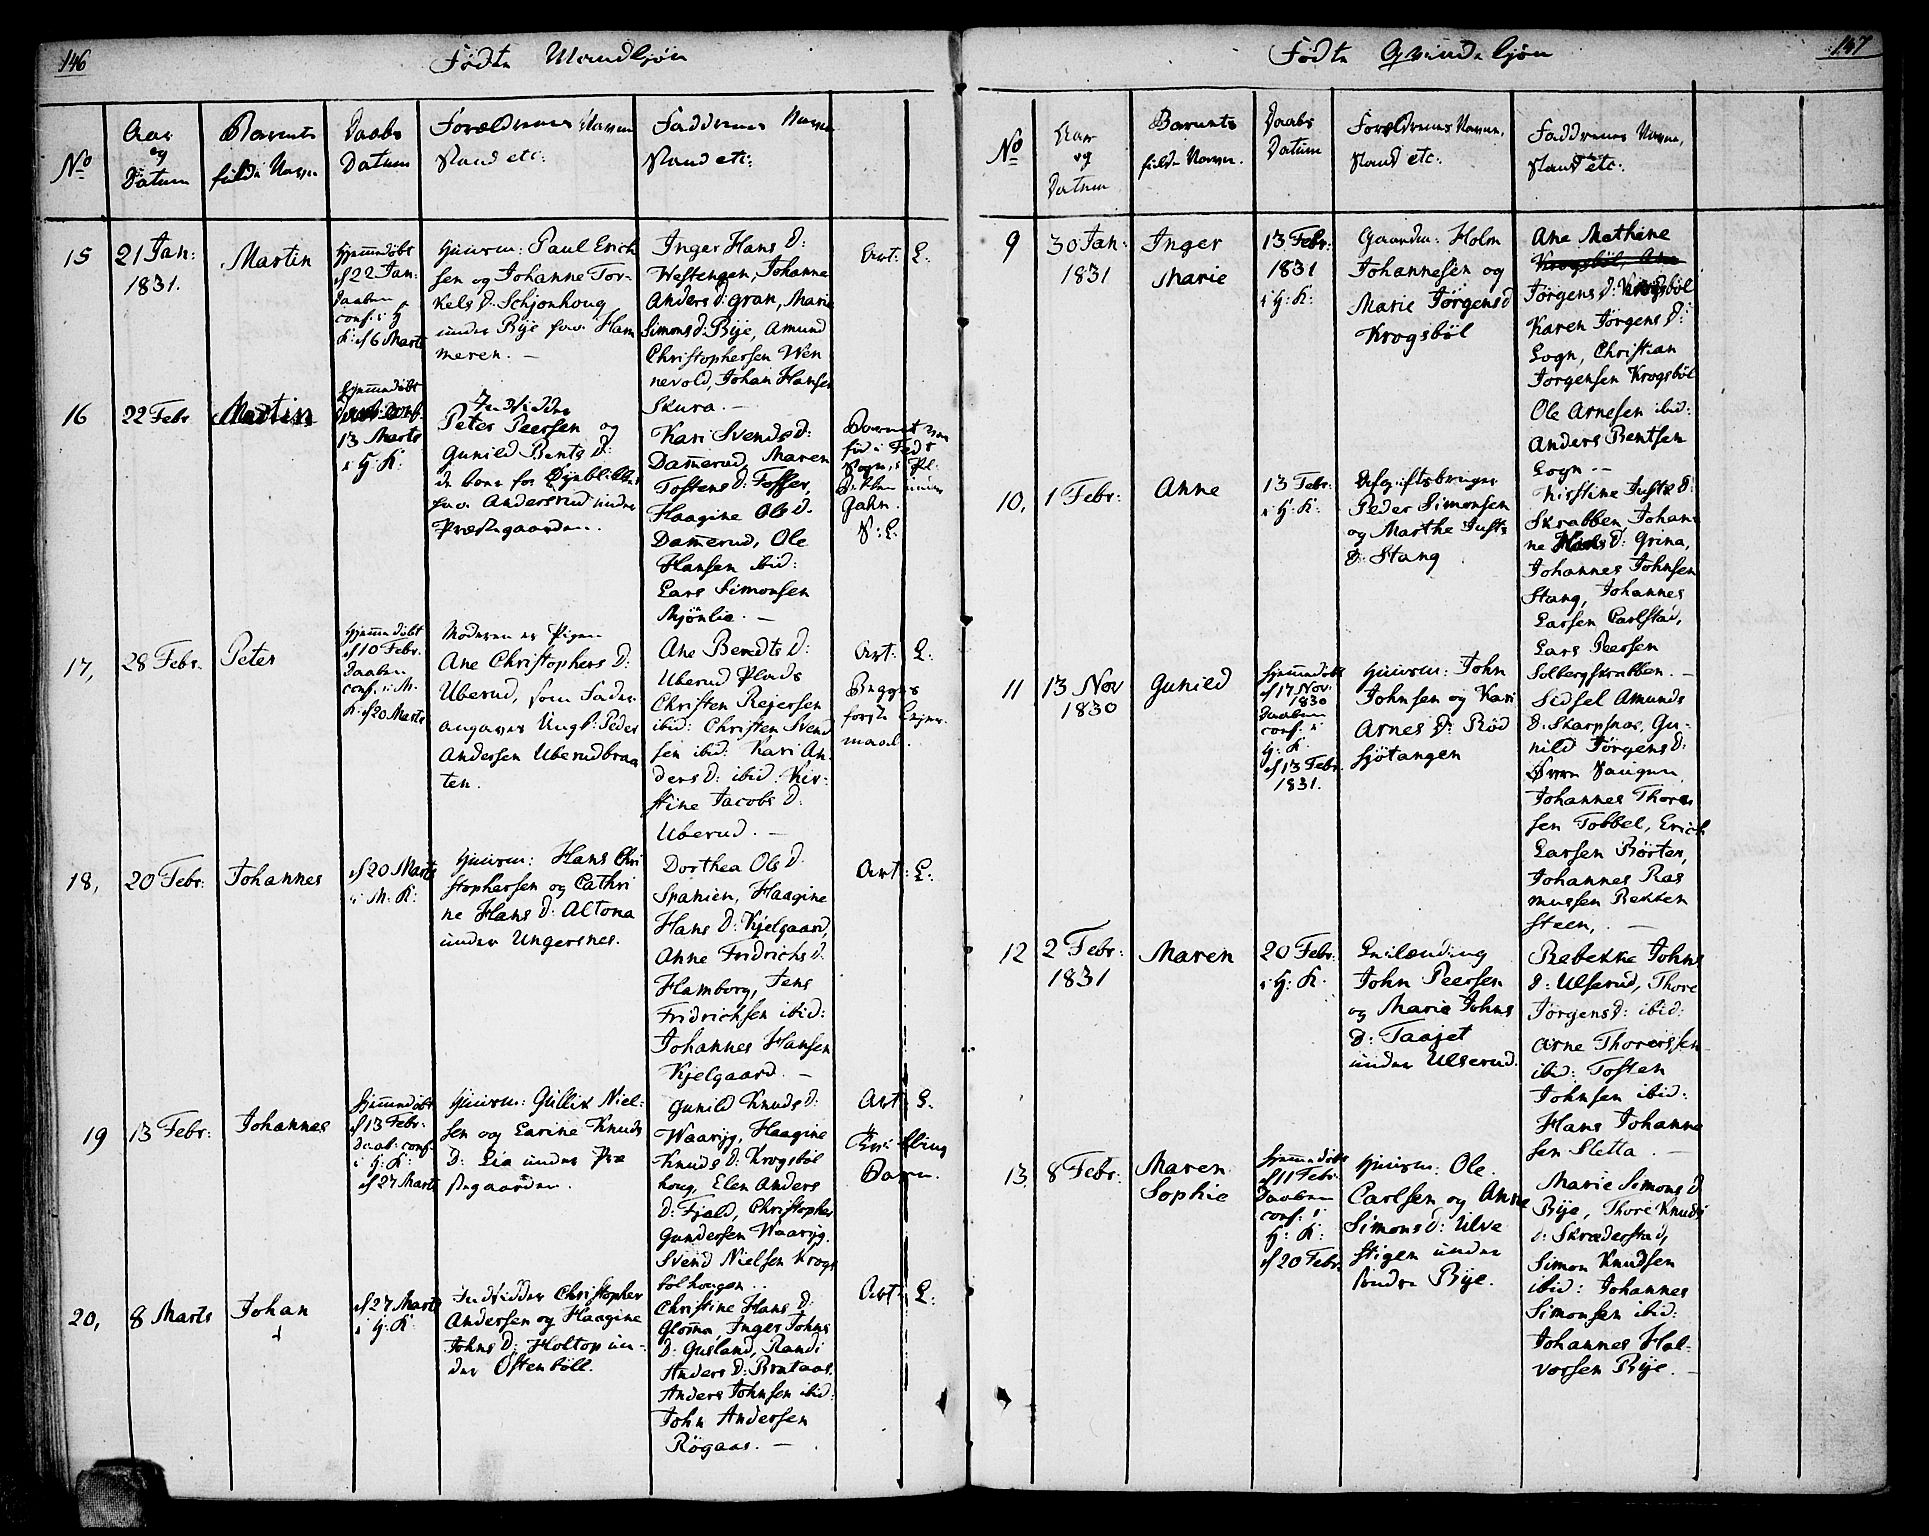 146
Fødte Mandkjøn
No
Aar
og
Datum
Barnets
fulde Navn
Daabs
Datum
Forældrenes Navne
Stand etc:
Faddrenes Navne
Stand etc:
15
21 Jan:
1831.
Martin
Hjemmedøbt
d 22 Jan:
Daaben
conf: i H
K: d 6 Marts
Huusm: Paul Erich
sen og Johanne Tor-
kels D: Schjonhoug
under Bÿe paa Ham
meren. —
Inger Hans D:
Westengen, Johanne
Anders D: Gran, Marie
Simons D: Bÿe, Amund
Christophersen Wen
nevold, Johan Hansen
Skura. —
Art: L.
16
22 Febr
Martin
Hjemmedøbt
Daab: Conf.
13 Marts
i H: K:
Indsidder
Peter Peersen og
Gunild Bents D:
paa Andersrud under
Præstegaarden.
Kari Svends D:
Damerud, Maren
Tostens D: Fosser,
Haagine Ols D.
Damerud, Ole
Hansen ibid:
Lars Simonsen
Mjönlie. —
Barnet er
fød i Fedt
Sogn, i Pl:
under
17,
28 Febr.
Peter
Hjemmedøbt
d 10 Febr.
Daaben
conf. i M.
K: d 20 Marts
Moderen er Pigen
Ane Christophers D:
Uberud, som Fader
angaves Ungk: Peder
Andersen Uberudbraa
ten.
Ane Bendts D:
Uberud Plads
Christen Rejersen
ibid: Christen Svend
sen ibid: Kari An-
ders D: ibid. Kir-
stine Jacobs D:
Uberud. —
Art: L.
Begges
første Lejer-
maal.
18,
20 Febr:
Johannes
d 20 Marts
i M: K:
Huusm: Hans Chri
stophersen og Cathri
ne Hans D: Altona
under Ungersnes.
Dorthea Ols D.
Spanien, Haagine
Hans D: Kjelgaard,
Anne Fridrichs D.
Hamborg, Jens
Fridrichsen ibid:
Johannes Hansen
Kjelgaard. —
Art: L.
19
13 Febr:
Johannes
Hjemmedøbt
d 13 Febr:
Daab: conf.
i H: K:
d 27 Marts
Huusm: Gullik Niel-
sen og Karine Knuds
D: Lia under Præ
stegaarden.
Gunild Knuds D:
Waarÿg, Haagine
Knuds D: Krogsbøl
houg, Elen Anders
D: Fjeld, Christopher
Gundersen Waarÿg.
Svend Nielsen Krogs
bølhougen.
Art: L.
Tvilling
Barn.
20,
8 Marts
Johan
d 27 Marts
i H: K:
Indsidder Christopher
Andersen og Haagine
Johns D: Holtop un-
der Ostenböll.
Christine Hans D:
Glomma, Inger Johns
D: Gusland, Randi
Anders D: Brataas,
Anders Johnsen ibid:
John Andersen
Rögaas. —
Art: L.
147
Fødte Qvindekjøn
No
Aar
og
Datum
Barnets
fulde Navn.
Daabs
Datum
Forældrenes Navne,
Stand etc:
Faddrenes Navne,
Stand etc:
9
30 Jan:
1831
Inger
Marie
13 Febr:
1831
i H: K:
Gaardm: Holm
Johannesen og
Marie Jörgens D
Krogsböl
Ane Mathine
Krogsböl, Ane
Jörgens D: Krogsböl
Karen Jörgens D:
Sogn, Christian
Jörgensen Krogsböl
Ole Arnesen ibid:
Anders Bentsen
Sogn —
10,
1 Febr:
Anne
13 Febr:
i H: K:
Peder Simonsen
og Marthe Justs
D: Stang
Kirstine Justs D:
Skrabben, Johan
ne Hans D: Grina,
Johannes Johnsen
Stang, Johannes
Larsen Carlstad,
Lars Peersen
Solbergskrabben. —
11
13 Nov
1830
Gunild
Hjemmedøbt
d 17 Nov:
1830
Daaben
conf: i
H: K:
d 13 Febr.
1831.
Huusm: John
Johnsen og Kari
Arnes D: Röd
sjötangen
Sidsel Amunds
D: Skarpsnos, Gu-
nild Jörgens D:
Johannes Thore
sen Tobbel, Erich
Larsen Börter,
Johannes Ras
mussen Bekken
steen, —
12
2 Febr:
1831
Maren
20 Febr:
i H: K.
John Peersen
og Marie Johns
D: Taajet
under Ulserud.
Rebekke Johns
D: Ulserud, Thore
Jörgens D: ibid:
Arne Thorersen
ibid: Tosten
Johnsen ibid:
Hans Johanne
sen Sletta. —
13
8 Febr.
Maren
Sophie
Hjemmedøbt
d 11 Febr.
Daaben
conf: i
H: K:
d 20 Febr.
Huusm: Ole
Carlsen og Anne
Simons D: Ulve
stigen under
Søndre Bÿe.
Marie Simons D
Bÿe, Thore Knuds
D: Skræderstad,
Simon Knudsen
ibid: Johannes
Simonsen ibid:
Johannes Hal-
vorsen Bÿe. —